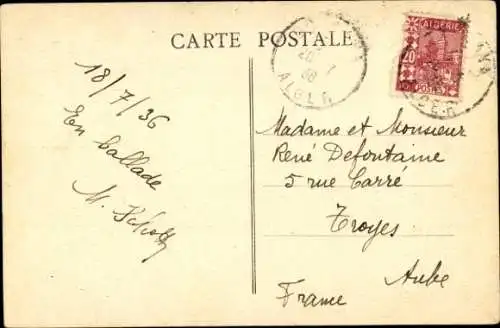 CARTE POSTALE
ALGÉRIE
20
POSTES
ALGER
18/7/36
En ballade
M.
Madame et Monsieur
René Defontaine
5 rue Carré
Troyes
Aube
France